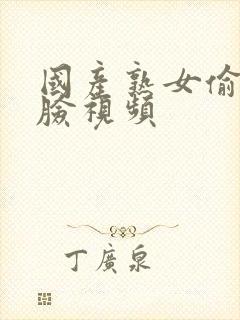 國產熟女偷
臉視頻
丁廣泉